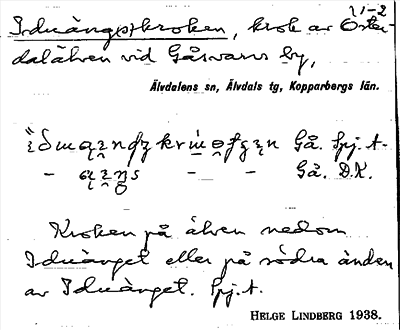 1-2
Iduäng(s)kroken, krok av Öster-
dalälven vid Gåsvarvs by,
Älvdalens sn, Älvdals tg, Kopparbergs län.
Gå. Spj. A.
— — — Gå. D.K.
Kroken på älven nedom
Iduänget eller på södra änden
av Iduänget. Spj. A.
HELGE LINDBERG 1938.